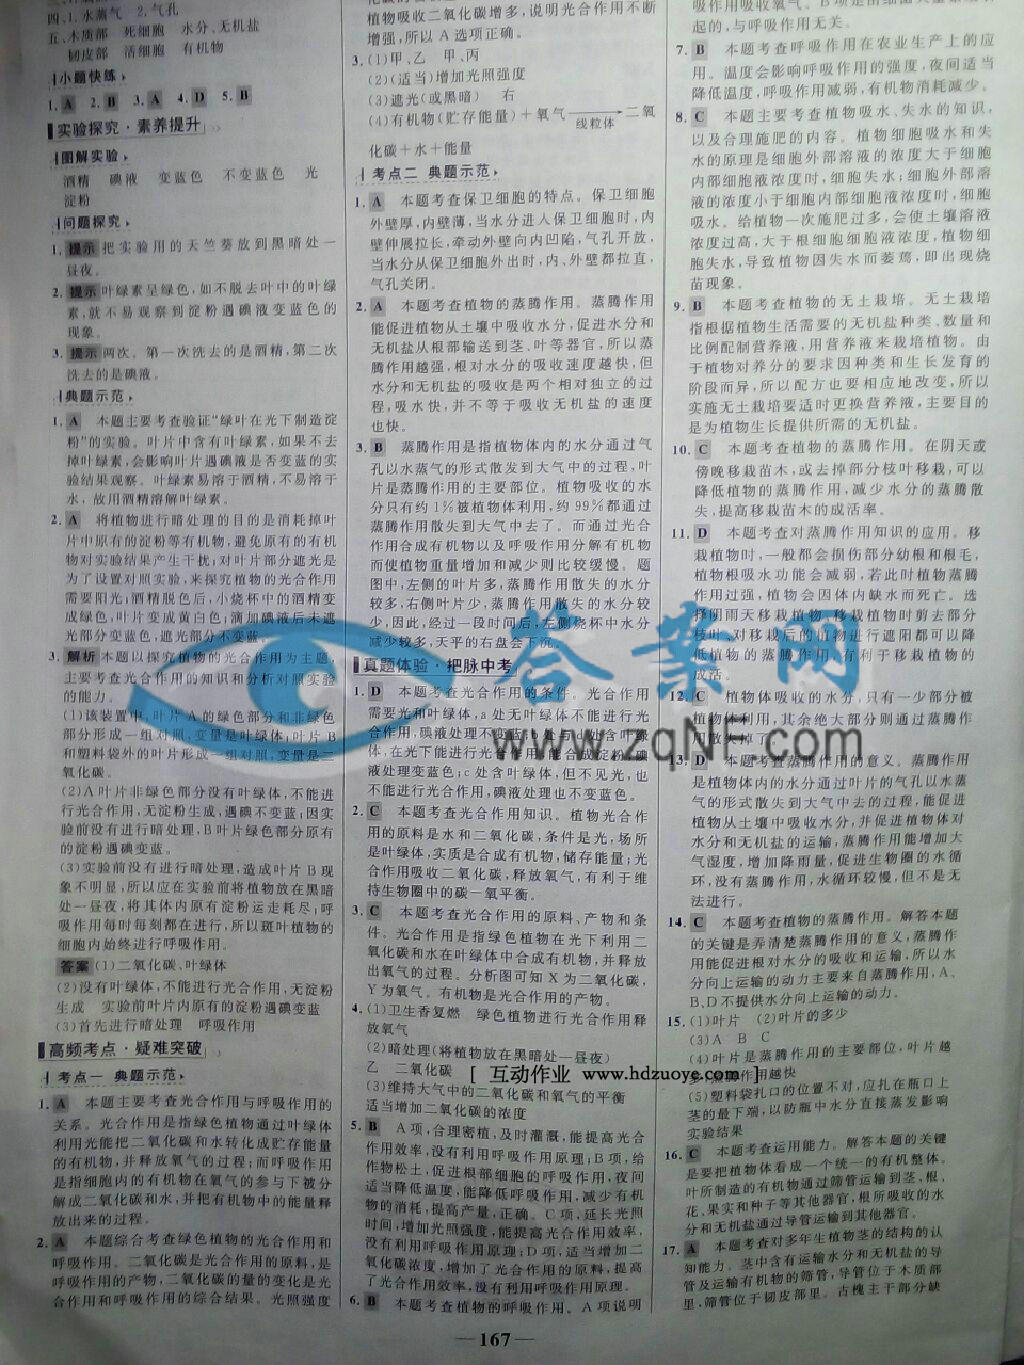 四、1. 水蒸气 2. 气孔
五、木质部 死细胞 水分、无机盐
韧皮部 活细胞 有机物
小题快练
1. A 2. B 3. A 4. D 5. B
实验探究·素养提升
图解实验
酒精 碘液 变蓝色 不变蓝色 光
淀粉
问题探究
1. 提示 把实验用的天竺葵放到黑暗处一
昼夜。
2. 提示 叶绿素呈绿色,如不脱去叶中的叶绿
素,就不易观察到淀粉遇碘液变蓝色的
现象。
3. 提示 两次。第一次洗去的是酒精,第二次
洗去的是碘液。
典题示范
1. A 本题主要考查验证“绿叶在光下制造淀
粉”的实验。叶片中含有叶绿素,如果不去
掉叶绿素,会影响叶片遇碘液是否变蓝的实
验结果观察。叶绿素易溶于酒精,不易溶于
水,故用酒精溶解叶绿素。
2. A 将植物进行暗处理的目的是消耗掉叶
片中原有的淀粉等有机物,避免原有的有机
物对实验结果产生干扰;对叶片部分遮光是
为了设置对照实验,来探究植物的光合作用
需要阳光;酒精脱色后,小烧杯中的酒精变
成绿色,叶片变成黄白色;滴加碘液后未遮
光部分变蓝色,遮光部分不变蓝。
3. 解析 本题以探究植物的光合作用为主题,
主要考查光合作用的知识和分析对照实验
的能力。
(1)该装置中,叶片 A 的绿色部分和非绿色
部分形成一组对照,变量是叶绿体;叶片 B
和塑料袋外的叶片形成一组对照,变量是二
氧化碳。
(2)A 叶片非绿色部分没有叶绿体,不能进
行光合作用,无淀粉生成,遇碘不变蓝;因实
验前没有进行暗处理,B 叶片绿色部分原有
的淀粉遇碘变蓝。
(3)实验前没有进行暗处理,造成叶片 B 现
象不明显,所以应在实验前将植物放在黑暗
处一昼夜,将其体内原有淀粉运走耗尽;呼
吸作用每时每刻都在进行,所以斑叶植物的
细胞内始终进行呼吸作用。
答案 (1)二氧化碳、叶绿体
(2)没有叶绿体,不能进行光合作用,无淀粉
生成 实验前叶片内原有的淀粉遇碘变蓝
(3)首先进行暗处理 呼吸作用
高频考点·疑难突破
考点一 典题示范
1. A 本题主要考查光合作用与呼吸作用的
关系。光合作用是指绿色植物通过叶绿体
利用光能把二氧化碳和水转化成贮存能量
的有机物,并释放氧气的过程;而呼吸作用
是指细胞内的有机物在氧气的参与下被分
解成二氧化碳和水,并把有机物中的能量释
放出来的过程。
2. A 本题综合考查绿色植物的光合作用和
呼吸作用。二氧化碳是光合作用的原料,是
呼吸作用的产物,二氧化碳的量的变化是光
合作用和呼吸作用的综合结果。光照强度
植物吸收二氧化碳增多,说明光合作用不断
增强,所以 A 选项正确。
3. (1)甲、乙 甲、丙
(2)(适当)增加光照强度
(3)遮光(或黑暗) 右
(4)有机物(贮存能量)+氧气 线粒体 二氧
化碳+水+能量
考点二 典题示范
1. A 本题考查保卫细胞的特点。保卫细胞
外壁厚,内壁薄,当水分进入保卫细胞时,内
壁伸展拉长,牵动外壁向内凹陷,气孔开放,
当水分从保卫细胞外出时,内、外壁都拉直,
气孔关闭。
2. A 本题考查植物的蒸腾作用。蒸腾作用
能促进植物从土壤中吸收水分,促进水分和
无机盐从根部输送到茎、叶等器官,所以蒸
腾作用越强,根对水分的吸收速度越快,但
水分和无机盐的吸收是两个相对独立的过
程,吸水快,并不等于吸收无机盐的速度
也快。
3. B 蒸腾作用是指植物体内的水分通过气
孔以水蒸气的形式散发到大气中的过程,叶
片是蒸腾作用的主要部位。植物吸收的水
分只有约 1%被植物体利用,约 99%都通过
蒸腾作用散失到大气中去了。而通过光合
作用合成有机物以及呼吸作用分解有机物
而使植物重量增加和减少则比较缓慢。题
图中,左侧的叶片多,蒸腾作用散失的水分
较多,右侧叶片少,蒸腾作用散失的水分较
少,因此,经过一段时间后,左侧烧杯中水分
减少较多,天平的右盘会下沉。
真题体验·把脉中考
1. D 本题考查光合作用的条件。光合作用
需要光和叶绿体,a 处无叶绿体不能进行光
合作用,碘液处理不变蓝;b 处与
在光下能进行光合作用,能合成淀粉,碘
液处理变蓝色;c 处含叶绿体,但不见光,也
不能进行光合作用,碘液处理也不变蓝色。
2. C 本题考查光合作用知识。植物光合作
用的原料是水和二氧化碳,条件是光,场所
是叶绿体,实质是合成有机物,储存能量;光
合作用吸收二氧化碳,释放氧气,有利于维
持生物圈中的碳—氧平衡。
3. C 本题考查光合作用的原料、产物和条
件。光合作用是指绿色植物在光下利用二
氧化碳和水在叶绿体中合成有机物,并释放
出氧气的过程。分析图可知 X 为二氧化碳,
Y 为氧气。有机物是光合作用的产物。
4. (1)卫生香复燃 绿色植物进行光合作用释
放氧气
(2)暗处理(将植物放在黑暗处一昼夜)
乙 二氧化碳
(3)维持大气中的二氧化碳和氧气的平衡
适当增加二氧化碳的浓度
5. B A 项,合理密植,及时灌溉,能提高光合
作用效率,没有利用呼吸作用原理;B 项,给
作物松土,促进根部细胞的呼吸作用,夜间
适当降低温度,能降低呼吸作用,减少有机
物的消耗,提高产量,正确。C 项,延长光照
时间,增加光照强度,能提高光合作用效率,
没有利用呼吸作用原理;D 项,适当增加二
氧化碳浓度,增加了光合作用的原料,提高
了光合作用效率,没有利用呼吸作用原理。
6. B 本题考查植物的呼吸作用。A 项说明
起的,与呼吸作用无关。
7. B 本题考查呼吸作用在农业生产上的应
用。温度会影响呼吸作用的强度,夜间适当
降低温度,呼吸作用减弱,有机物消耗减少。
8. C 本题考查植物吸水、失水的知识,
以及合理施肥的内容。植物细胞吸水和失
水的原理是细胞外部溶液的浓度大于细胞
内部细胞液浓度时,细胞失水;细胞外部溶
液的浓度小于细胞内部细胞液浓度时,细胞
吸水。给植物一次施肥过多,会使土壤溶液
浓度过高,大于根细胞细胞液浓度,植物细
胞失水,导致植物因失水而萎蔫,即出现烧
苗现象。
9. B 本题考查植物的无土栽培。无土栽培
指根据植物生活需要的无机盐种类、数量和
比例配制营养液,用营养液来栽培植物。由
于植物对养分的要求因种类和生长发育的
阶段而异,所以配方也要相应地改变,所以
实施无土栽培要适时更换营养液,主要目的
是为植物生长提供所需的无机盐。
10. C 本题考查植物的蒸腾作用。在阴天或
傍晚移栽苗木,或去掉部分枝叶移栽,可以
降低植物的蒸腾作用,减少水分的蒸腾散
失,提高移栽苗木的成活率。
11. D 本题考查对蒸腾作用知识的应用。移
栽植物时,一般都会损伤部分幼根和根毛,
植物根吸水功能会减弱,若此时植物蒸腾
作用过强,植物会因体内缺水而死亡。选
择阴雨天移栽植物、移栽植物时剪去部分
枝叶、对移栽后的植物进行遮阳都可以降
低植物的蒸腾作用,有利于移栽植物的
成活。
12. C 植物体吸收的水分,只有一少部分被
植物体利用,其余绝大部分则通过蒸腾作
用散失掉了。
13. D 本题考查蒸腾作用的意义。蒸腾作用
是植物体内的水分通过叶片的气孔以水蒸
气的形式散失到大气中去的过程,能促进
植物从土壤中吸收水分,并促进植物体对
水分和无机盐的运输,蒸腾作用能增加大
气湿度,增加降雨量,促进生物圈的水循
环,没有蒸腾作用,水循环较慢,但不是无
法进行。
14. C 本题考查植物的蒸腾作用。解答本题
的关键是弄清楚蒸腾作用的意义,蒸腾作
用能促进根对水分的吸收和运输,所以水
分向上运输的动力主要来自蒸腾作用,A、
B、D 不提供水分向上运输的动力。
15. (1)叶片 (2)叶片的多少
(3)A B C
(4)叶片是蒸腾作用的主要部位,叶片越
多,蒸腾作用越快
(5)塑料袋扎口的位置不对,应扎在瓶口上
茎的最下端,以防瓶中水分直接蒸发影响
实验结果
16. C 本题考查运用能力。解答本题的关键
是要把植物体看成一个统一的有机整体。
叶所制造的有机物通过筛管运输到茎、根、
花、果实和种子等其他器官,根所吸收的水
分和无机盐通过导管运输到其他器官。
17. A 本题考查对多年生植物茎的结构的认
知能力。茎中含有运输水分和无机盐的导
管及运输有机物的筛管,导管位于木质部
里,筛管位于韧皮部里。古槐主干部分缺
— 167 —
答案网
www.zqNF.com
[ 互动作业 www.hdzuoye.com ]